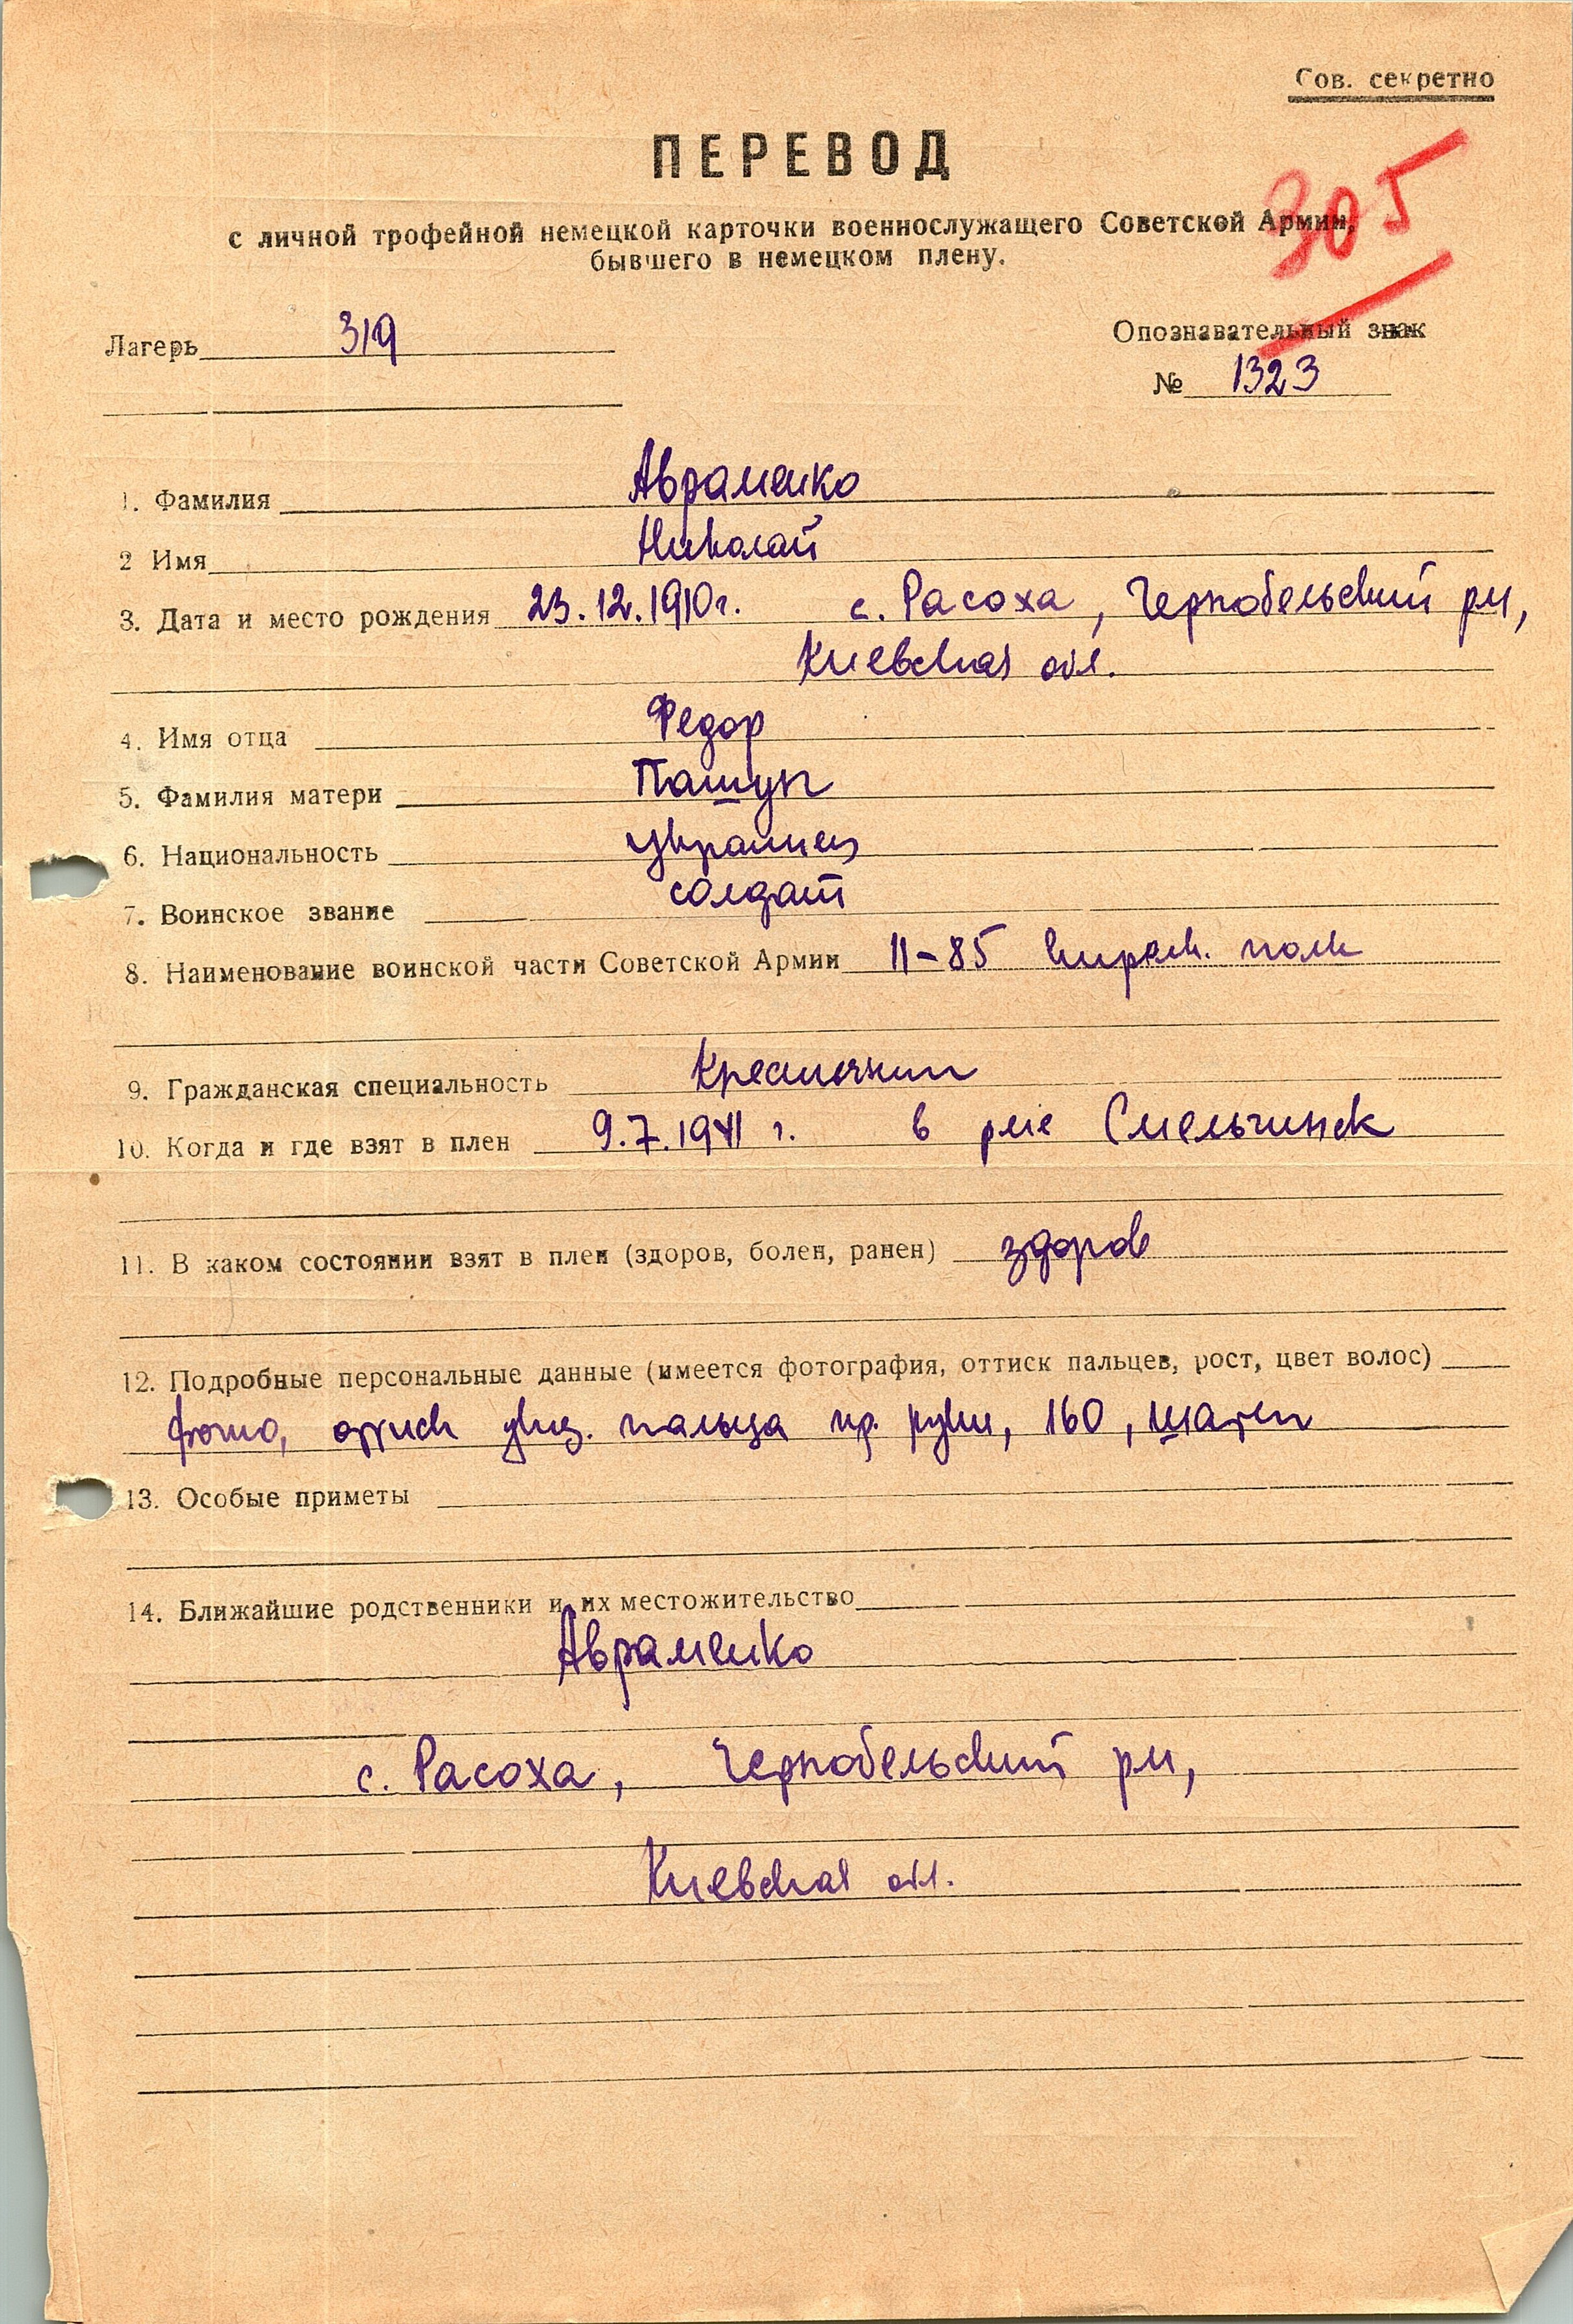 Сов. секретно
ПЕРЕВОД
305
с личной трофейной немецкой карточки военнослужащего Советской Армии,
бывшего в немецком плену.
Лагерь 319
Опознавательный знак
№ 1323
1. Фамилия Авраменко
2 Имя Николай
3. Дата и место рождения 23.12.1910г. с. Расоха, Чернобельский рн,
Киевская обл.
4. Имя отца Федор
5. Фамилия матери Пашун
6. Национальность украинец
7. Воинское звание солдат
8. Наименование воинской части Советской Армии 11-85 полк
9. Гражданская специальность Крестьянин
10. Когда и где взят в плен 9.7.1941 г. в рне Смельчинск
11. В каком состоянии взят в плен (здоров, болен, ранен) здоров
12. Подробные персональные данные (имеется фотография, оттиск пальцев, рост, цвет волос)
фото, оттиск указ. пальца пр. руки, 160, шатен
13. Особые приметы
14. Ближайшие родственники и их местожительство
Авраменко
с. Расоха, Чернобельский рн,
Киевская обл.